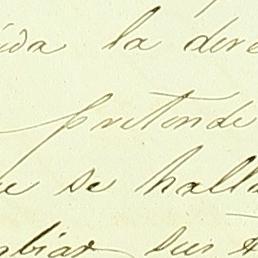 ida la dere
pretende
ue se hall
mbiar sus